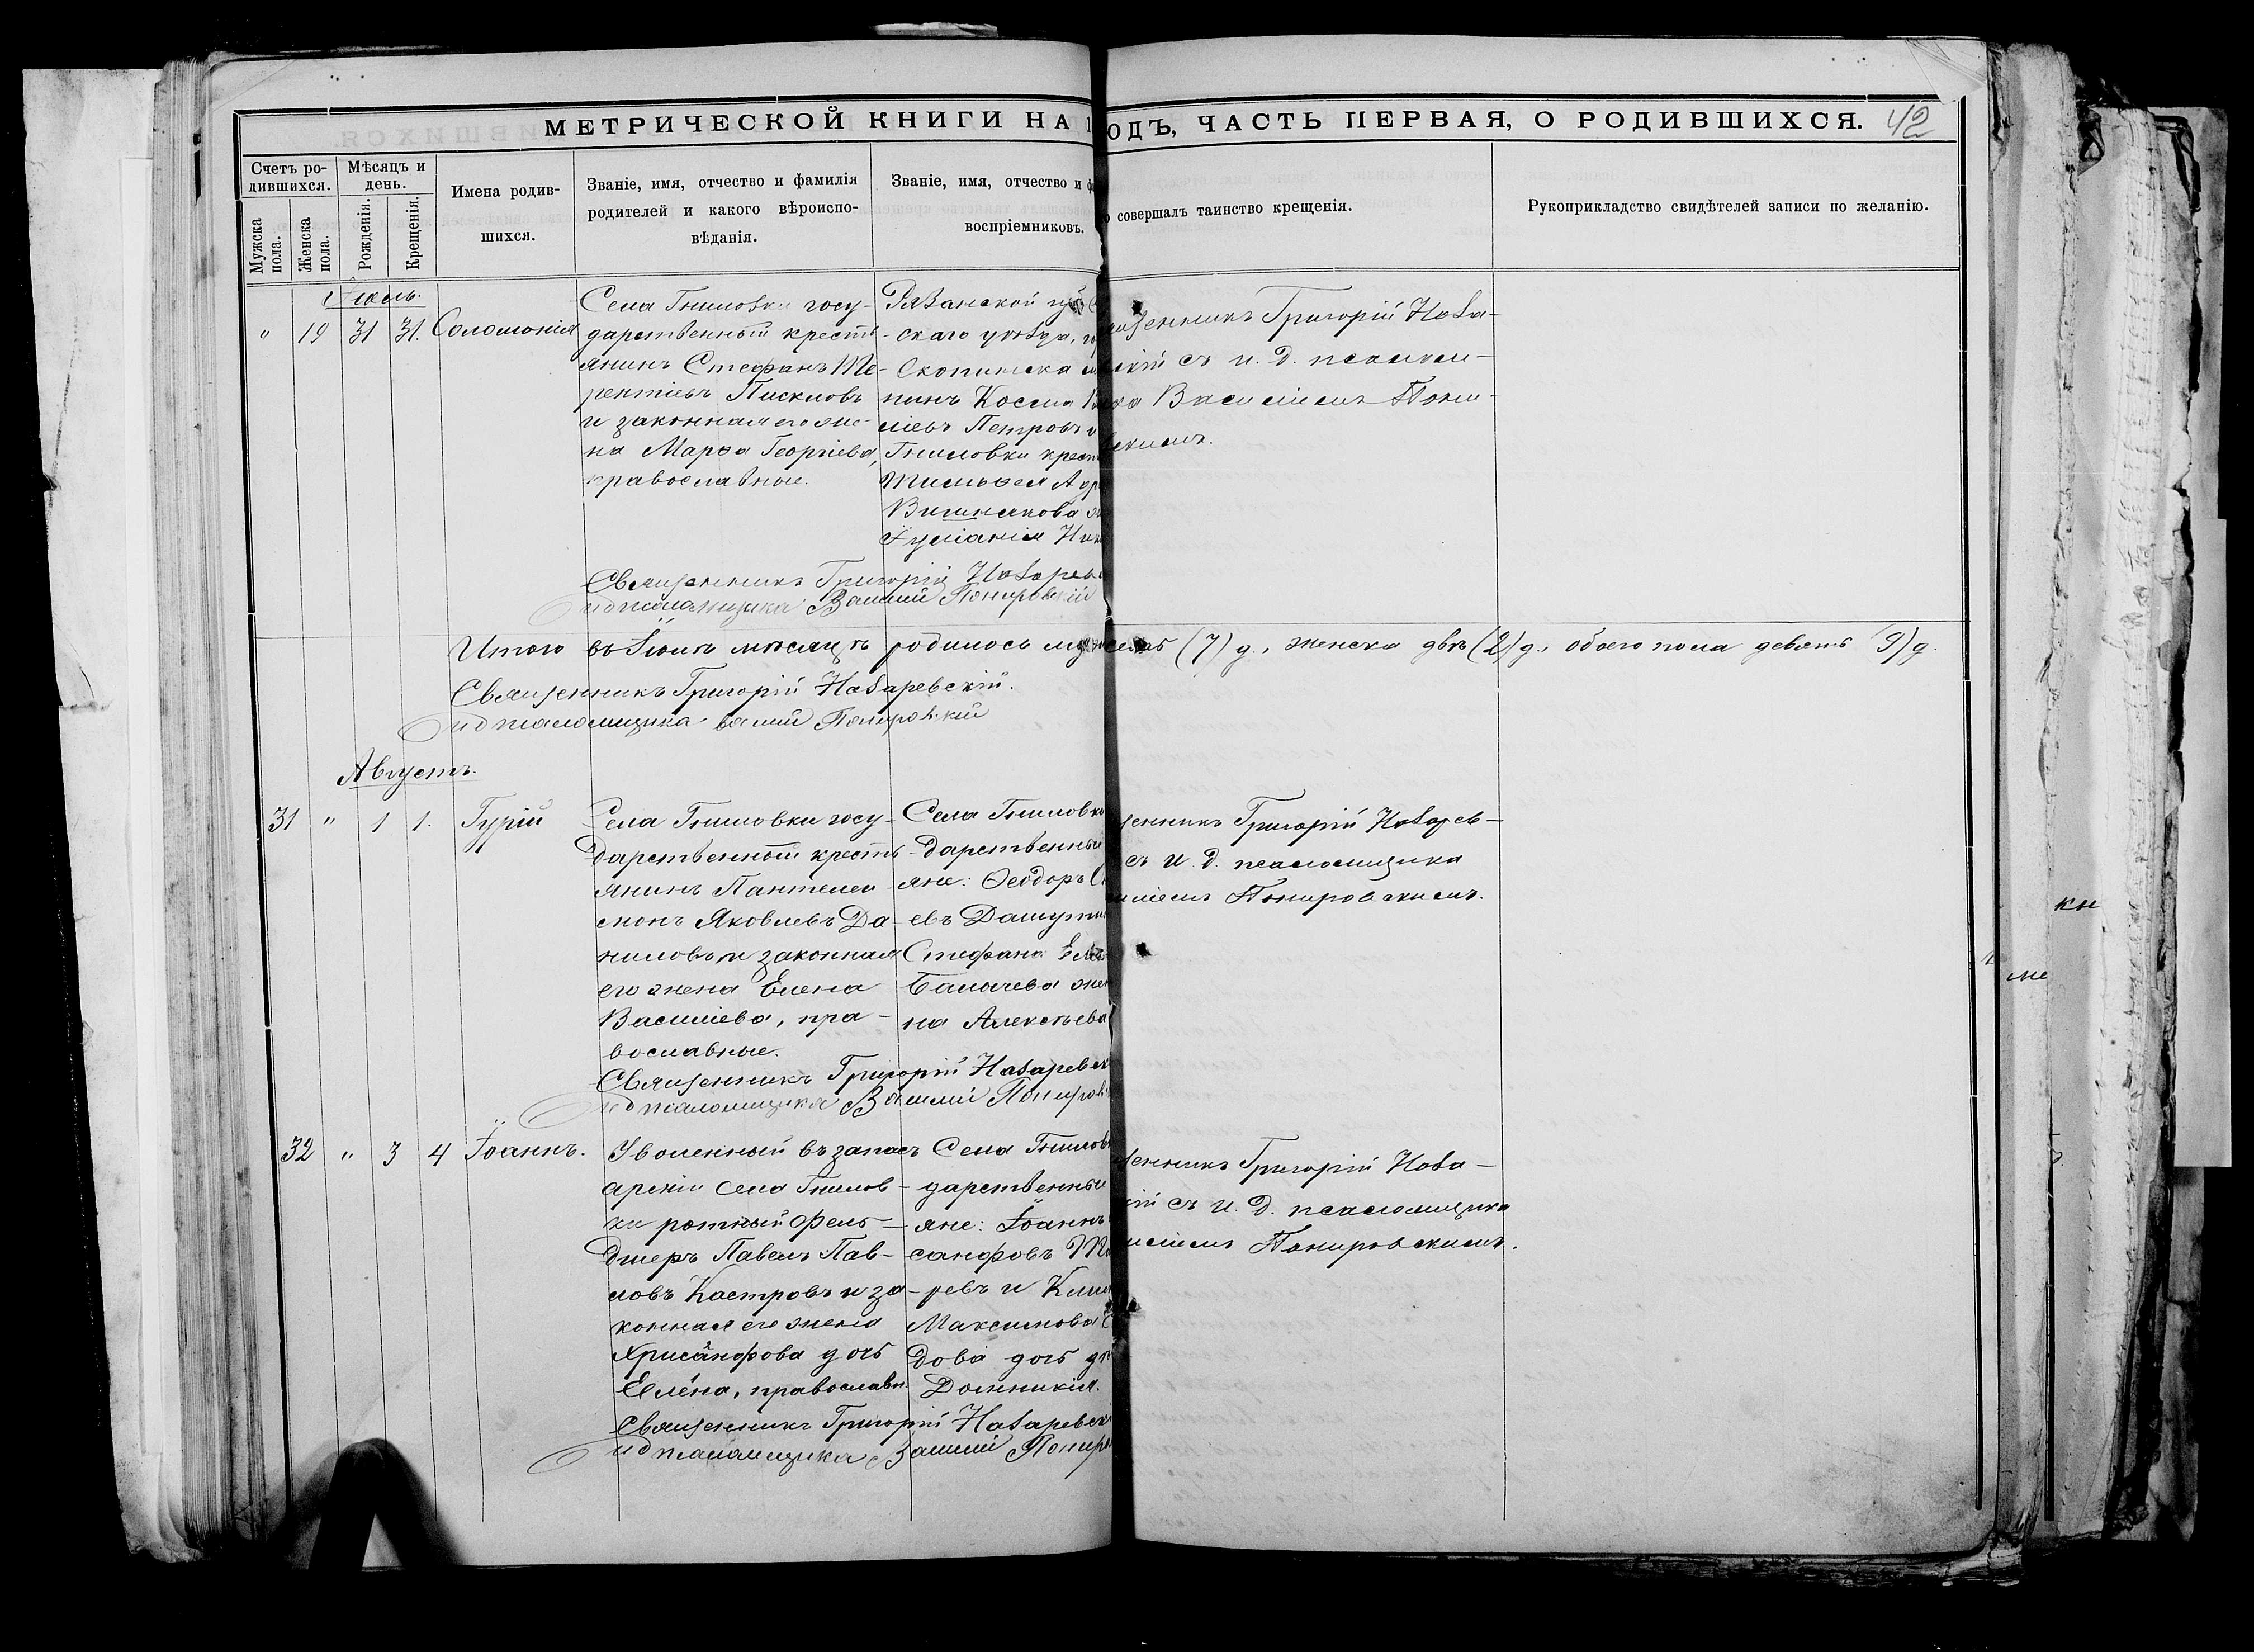 МЕТРИЧЕСКОЙ КНИГИ НА 1
ОДЪ, ЧАСТЬ ПЕРВАЯ, О РОДИВШИХСЯ. 42
Счетъ ро-
дившихся.
Мужска
пола.
Женска
пола.
Мѣсяцъ и
день.
Рожденія.
Крещенія.
Имена родив-
шихся.
Званіе, имя, отчество и фамилія
родителей и какого вѣроиспо-
вѣданія.
Званіе, имя, отчество и ф
воспріемниковъ.
совершалъ таинство крещенія.
Рукоприкладство свидѣтелей записи по желанію.
Іюль.
" 19 31 31. Соломонія
Села Гниловки госу-
дарственный кресть
янинъ Стефанъ Те-
рентіевъ Пискловъ
и законная его же-
на Марѳа Георгіева,
православные.
Рязанской губ
-скаго уѣзда, г
Скопинска
нинъ Косма В
ліевъ Петровъ и
Гниловки крест
Тимоѳея Адр
Вишнякова
Іуліанія Ник
щенникъ Григорій Наза-
скій съ и. д. псалом-
ка Василіемъ Пони-
скимъ.
Священникъ Григорій Назарев
ид псаломщика Василій Понировскій
Итого въ Іюлѣ мѣсяцѣ родилось муж семь (7) д., женска двѣ (2) д., обоего пола девять (9) д.
Священникъ Григорій Назаревскій.
ид псаломщика Василій Понировскій
Августъ.
31 " 1 1. Гурій
Села Гниловки госу-
дарственный кресть-
янинъ Пантелеи
монъ Яковлевъ Да-
ниловъ и законная
его жена Елена
Василіева, пра-
вославные.
Села Гниловк
дарственны
яне: Ѳеодоръ С
евъ Дашути
Стефана Еле
Балычева же
на Алексѣева
щенникъ Григорій Назарев-
съ и. д. псаломщика
иліемъ Понировскимъ.
Священникъ Григорій Назаревск
ид псаломщика Василій Понировс
32 " 3 4 Іоаннъ.
Уволенный въ запасъ
арміи села Гнилов-
ки ротный фель-
дшеръ Павелъ Пав-
ловъ Костровъ и за-
конная его жена
Хрисанфова дочь
Елена, православн.
Села Гнилов
дарственны
яне: Іоаннъ
санфовъ
ревъ и Кли
Максимова
дова дочь дѣ
Домникія.
щенникъ Григорій Наза-
кій съ и. д. псаломщика
иліемъ Понировскимъ.
Священникъ Григорій Назаревск
ид псаломщика Василій Понир
кн
ме